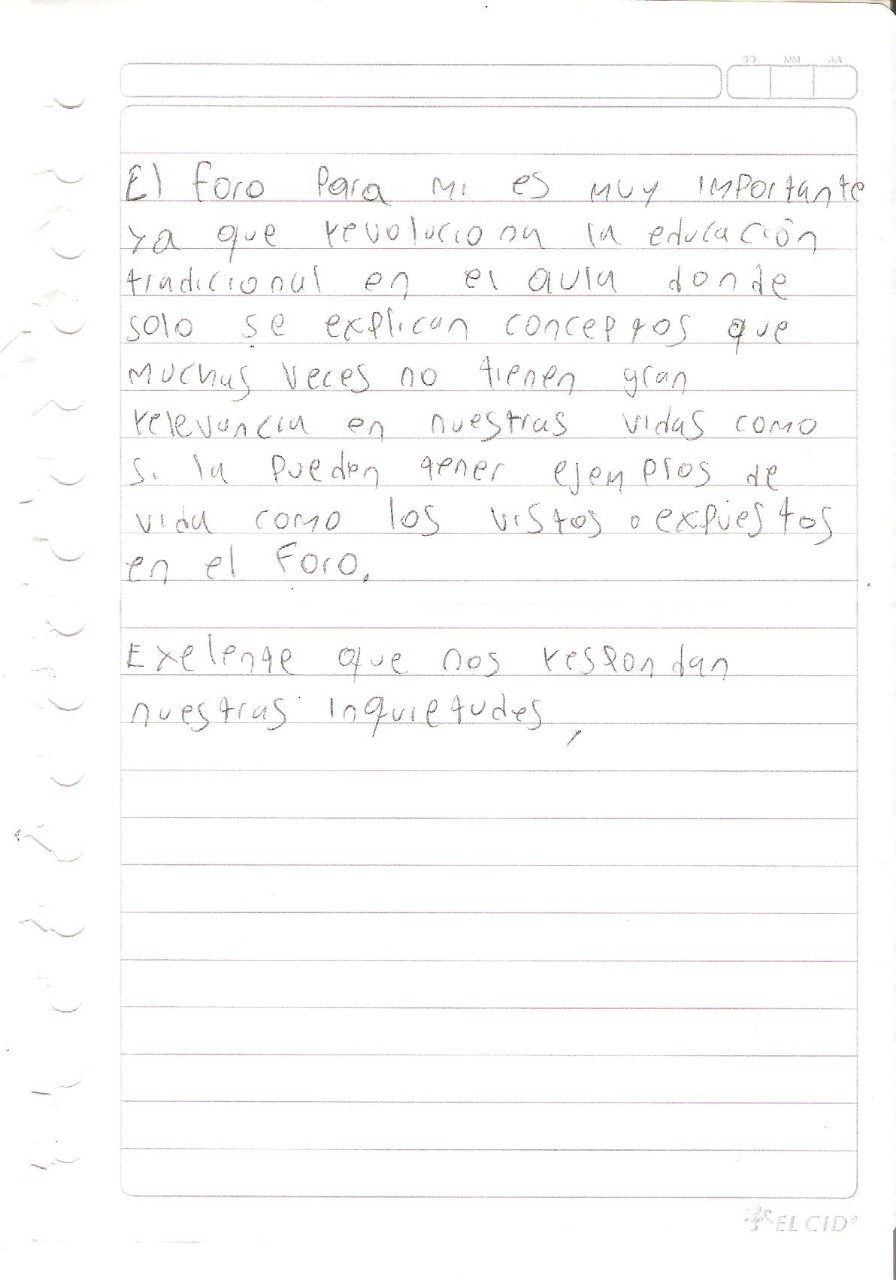 DD MM AA
El foro para mi es muy importante
ya que revoluciona la educación
tradicional en el aula donde
solo se explican conceptos que
muchas veces no tienen gran
relevancia en nuestras vidas como
si la pueden tener ejemplos de
vida como los vistos o expuestos
en el foro.
Exelente que nos respondan
nuestras inquietudes,
EL CID